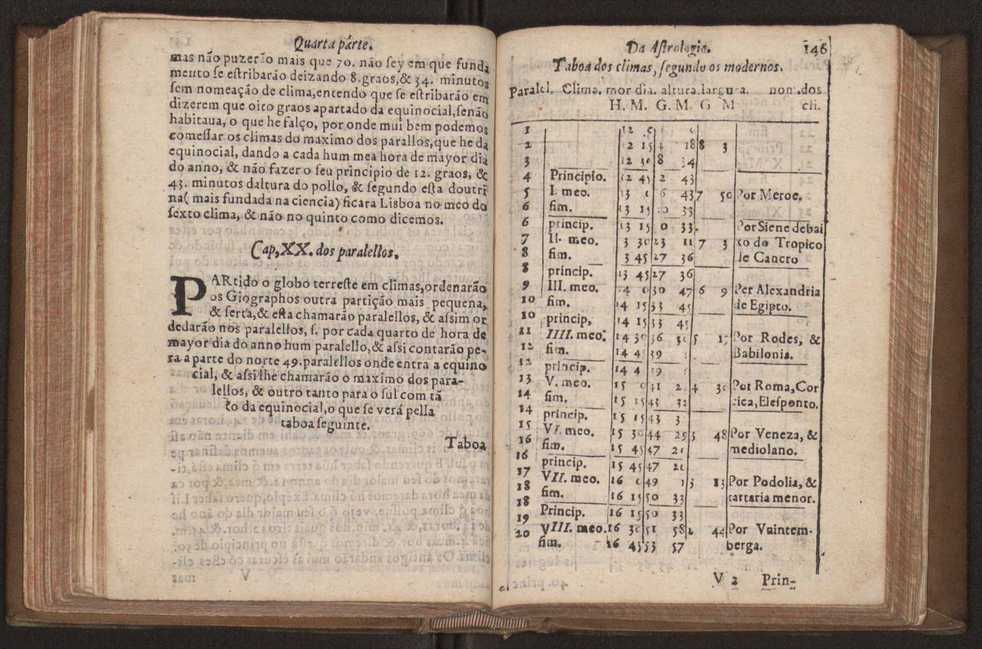 Quarta párte.
mas não puzerão mais que 70. não sey em que funda
mento se estribarão deizando 8. graos, & 34. minutos
sem nomeação de clima, entendo que se estribarão em
dizerem que oito graos apartado da equinocial, senão
habitaua, o que he falço, por onde mui bem podemos
comessar os climas do maximo dos parallos, que he da
equinocial, dando a cada hum mea hora de mayor dia
do anno, & não fazer o seu principio de 12. graos, &
43. minutos daltura do pollo, & segundo esta doutri
na( mais fundada na ciencia) ficara Lisboa no meo do
sexto clima, & não no quinto como dicemos.
Cap, XX. dos paralellos.
PARtido o globo terreste em climas, ordenarão
os Giographos outra partição mais pequena,
& serta, & esta chamarão paralellos, & assim or
dedarão nos paralellos, s. por cada quarto de hora de
mayor dia do anno hum paralello, & assi contarão pe-
ra a parte do norte 49. paralellos onde entra a equino
cial, & assi lhe chamarão o maximo dos para-
lellos, & outro tanto para o sul com tã
to da equinocial, o que se verá pella
taboa seguinte.
Taboa
Da Astrologia. 146
Taboa dos climas, segundo os modernos.
Paralel. Clima. mor dia. altura. largura. nom. dos
H. M. G. M. G M cli.
1 12
2 12 15 4 18 8 3
3 12 30 8 34
4 Principio. 12 45 12 43
5 I. meo. 13 6 43 7 50 Por Meroe,
6 fim. 13 15 20 33
6 princip. 13 15 0 33. Por Siene debai
7 II. meo. 3 30 23 11 7 3 xo do Tropico
8 fim. 3 45 27 36 de Cancro
8 princip. 13 45 27 36
9 III. meo. 4 0 30 47 6 9 Per Alexandria
10 fim. 14 15 33 45 de Egipto.
10 princip, 14 15 33 45
11 IIII. meo. 14 30 36 30 5 17 Por Rodes, &
12 fim. 14 4 39 Babilonia.
12 princip. 14 4 39
13 V. meo. 15 0 41 2 4 30 Por Roma, Cor
14 fim. 15 15 43 32 cica, Elesponto.
14 princip. 15 15 43 3
15 VI. meo. 15 30 44 29 3 48 Por Veneza, &
16 fim. 15 45 47 20 mediolano.
16 princip. 15 45 47 20
17 VII. meo. 16 0 49 13 13 Por Podolia, &
18 fim. 16 15 50 33 tartaria menor.
18 Princip. 16 15 50 33
19 VIII. meo. 16 30 51 58 2 44 Por Vuintem-
20 fim. 16 45 53 57 berga.
V 2 Prin-